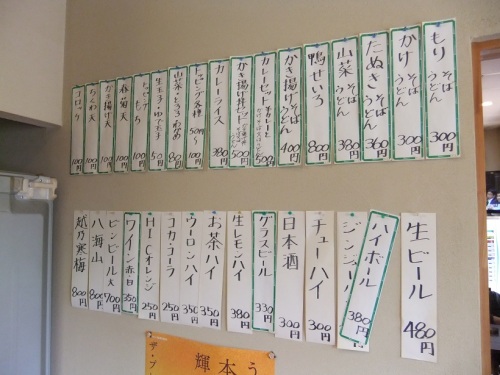 もり そば うどん 300円
かけ そば うどん 300円
たぬき そば うどん 360円
山菜 そば うどん 380円
鴨せいろ 800円
かき揚げ そば うどん 400円
カレーセット 500円
かき揚げ丼セット 500円
カレーライス 380円
トッピング各種 50円〜100円
山菜・とろろ・わかめ 80円
生玉子・ゆで玉子 50円
もち 100円
春菊天 100円
かき揚げ天 100円
ちくわ天 100円
コロッケ 100円
生ビール 480円
ハイボール 380円
ジンジャー
チューハイ 300円
日本酒 300円
グラスビール 330円
生レモンハイ 380円
お茶ハイ 350円
ウーロンハイ 350円
コカ・コーラ 250円
HI-Cオレンジ 250円
ワイン 赤白 350円
ビンビール 大 700円
八海山 800円
越乃寒梅 800円
う
本
輝
ザ・プ